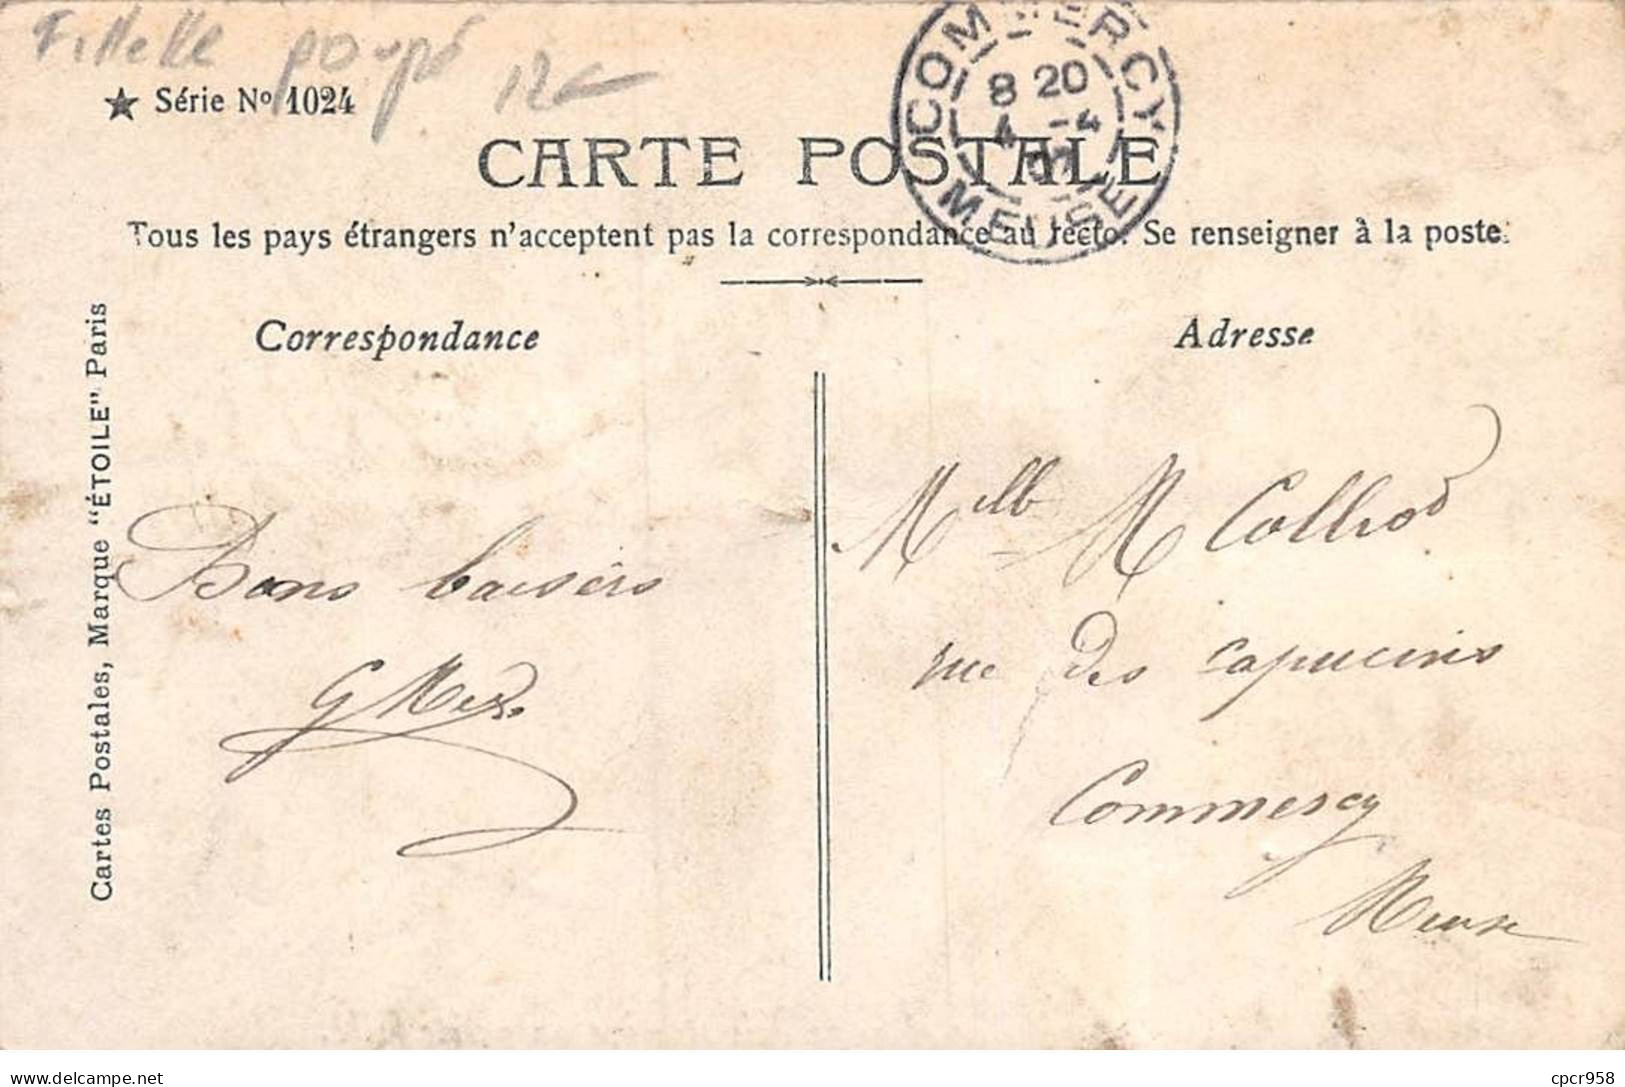 Fillette poupé
12€
★ Série Nº 1024
COMMERCY
8 20
4 -4
MEUSE
CARTE POSTALE
Tous les pays étrangers n'acceptent pas la correspondance au recto. Se renseigner à la poste.
Correspondance
Adresse
Cartes Postales, Marque "ÉTOILE" Paris
Bons baisers
Melle M Collrod
rue des capucins
Commercy
Meuse
delcampe.net
cpcr958